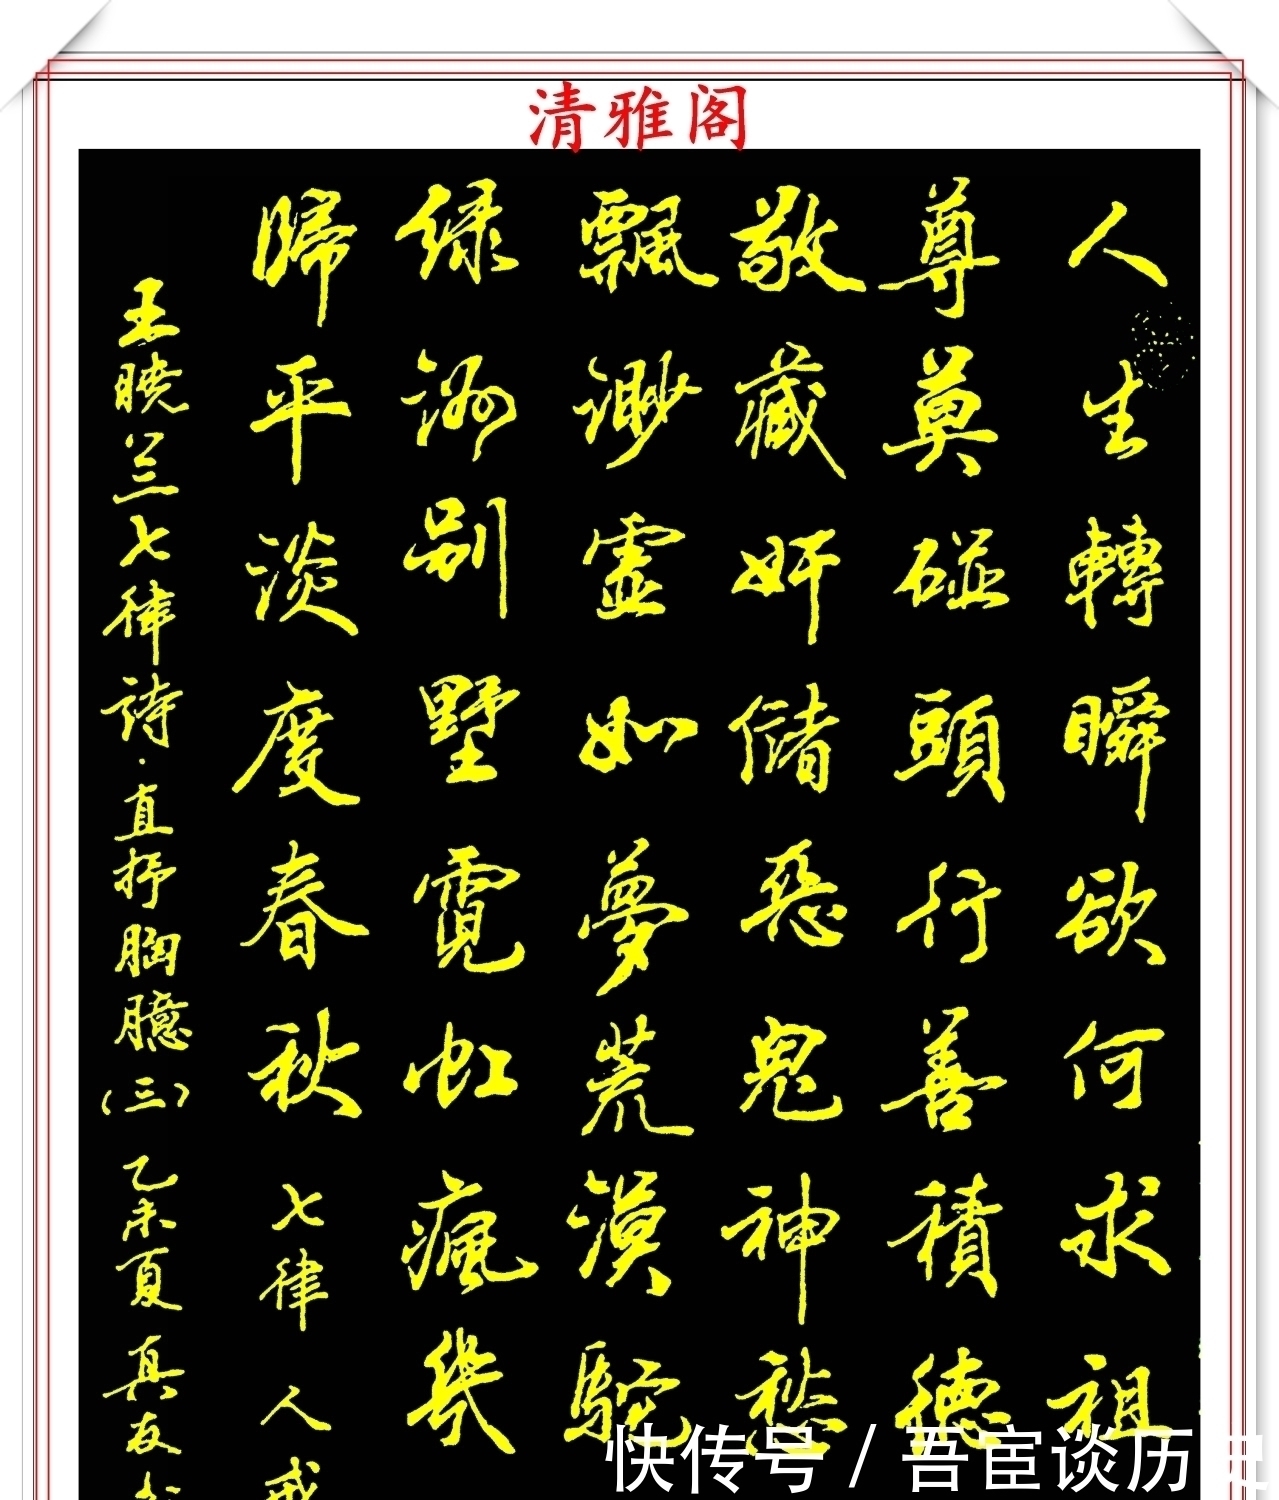 清雅阁
人生轉瞬欲何求祖
尊莫碰頭行善積德
敬藏奸儲惡鬼神愁
飄渺虛如夢荒漠駝
綠洲别墅霓虹瘋幾
歸平淡度春秋 七律 人戒
王曉兰七律詩·直抒胸臆(三) 乙未夏真友书
快传号 / 吾宦谈历史